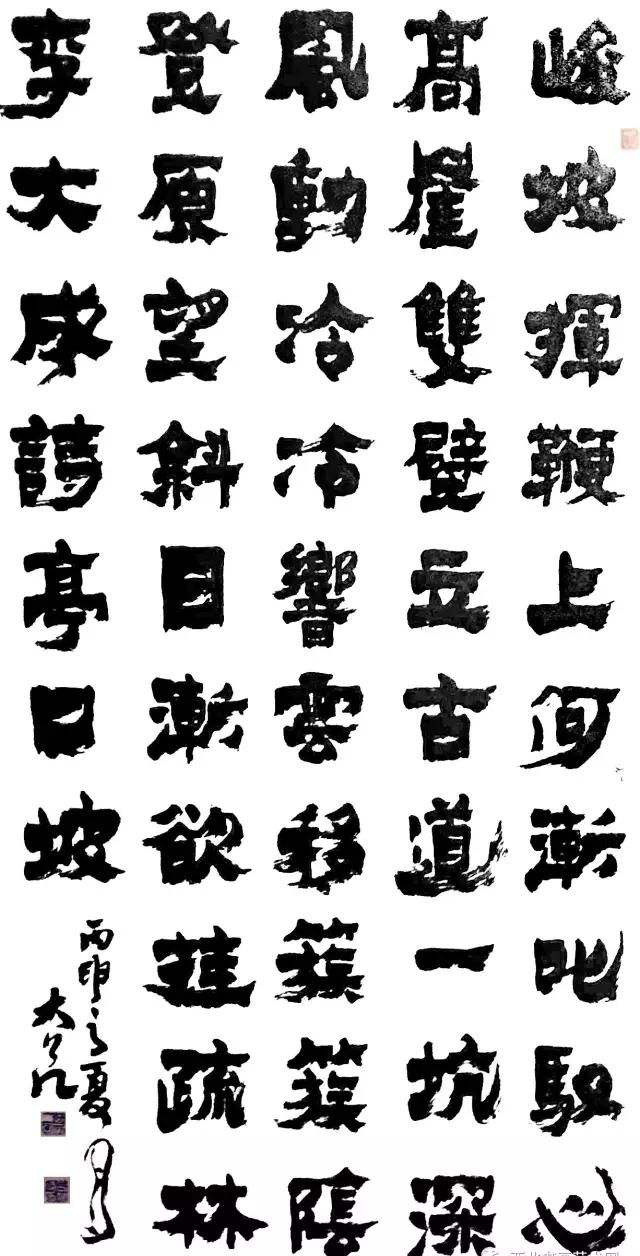 峻坡揮鞭上何漸叱馭心
高崖雙壁立古道一坑深
風動冷冷響雲移簇簇陰
登原望斜日漸欲疏林
李大成詩亭口坡
丙申之夏月